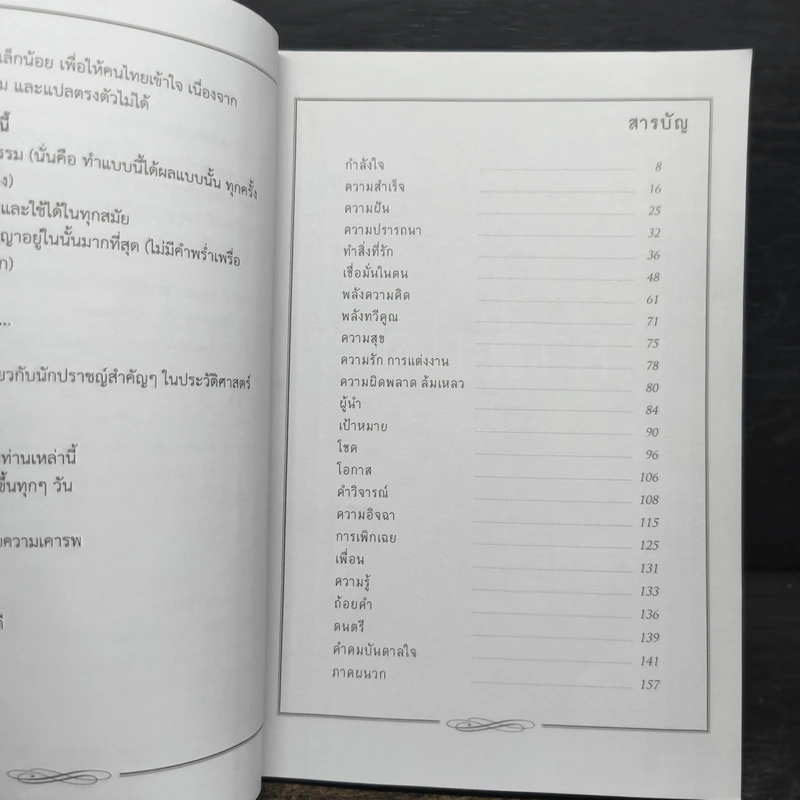 เล็กน้อย เพื่อให้คนไทยเข้าใจ เนื่องจาก
และแปลตรงตัวไม่ได้
นี้
(นั่นคือ ทำแบบนี้ได้ผลแบบนั้น ทุกครั้ง
และใช้ได้ในทุกสมัย
ญาอยู่ในนั้นมากที่สุด (ไม่มีคำพร่ำเพรื่อ
...
ยวกับนักปราชญ์สำคัญๆ ในประวัติศาสตร์
ท่านเหล่านี้
ขึ้นทุกๆ วัน
ยความเคารพ
สารบัญ
กำลังใจ 8
ความสำเร็จ 16
ความฝัน 25
ความปรารถนา 32
ทำสิ่งที่รัก 36
เชื่อมั่นในตน 48
พลังความคิด 61
พลังทวีคูณ 71
ความสุข 75
ความรัก การแต่งงาน 78
ความผิดพลาด ล้มเหลว 80
ผู้นำ 84
เป้าหมาย 90
โชค 96
โอกาส 106
คำวิจารณ์ 108
ความอิจฉา 115
การเพิกเฉย 125
เพื่อน 131
ความรู้ 133
ถ้อยคำ 136
ดนตรี 139
คำคมบันดาลใจ 141
ภาคผนวก 157